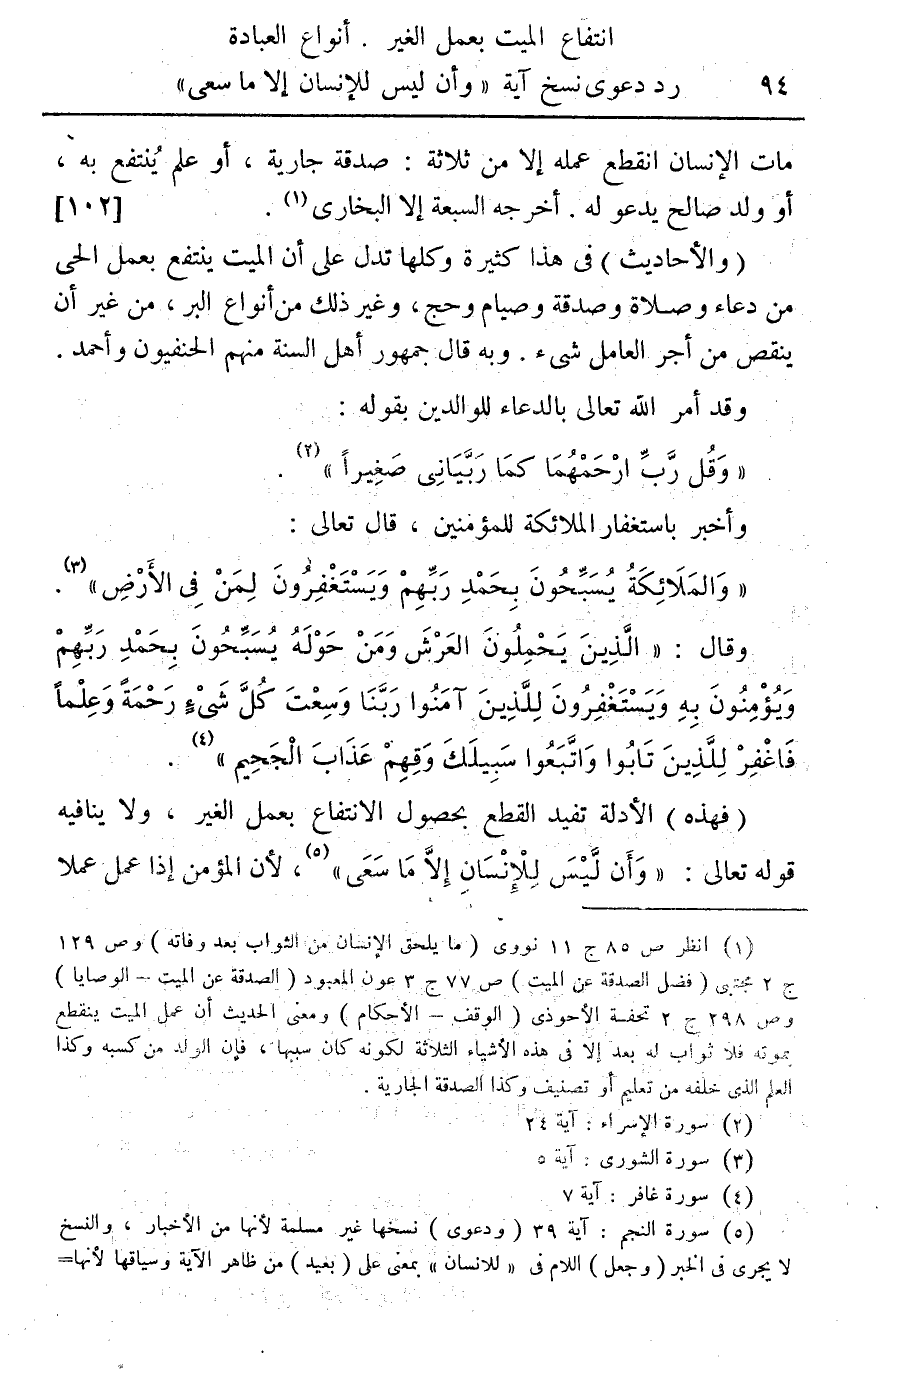 انتفاع الميت بعمل الغير . أنواع العبادة
٩٤ رد دعوى نسخ آية « وأن ليس للإنسان إلا ما سعى»
مات الإنسان انقطع عمله إلا من ثلاثة : صدقة جارية ، أو علم يُنتفع به ،
أو ولد صالح يدعو له . أخرجه السبعة إلا البخارى(١) . [١٠٢]
( والأحاديث ) فى هذا كثيرة وكلها تدل على أن الميت ينتفع بعمل الحى
من دعاء وصلاة وصدقة وصيام وحج ، وغير ذلك من أنواع البر ، من غير أن
ينقص من أجر العامل شىء . وبه قال جمهور أهل السنة منهم الحنفيون وأحمد .
وقد أمر الله تعالى بالدعاء للوالدين بقوله :
« وَقُل رَّبِّ ارْحَمْهُمَا كمَا رَبَّيَانِى صَغِيراً »(٢) .
وأخبر باستغفار الملائكة للمؤمنين ، قال تعالى :
« وَالمَلَائِكَةُ يُسَبِّحُونَ بِحَمْدِ رَبِّهِمْ وَيَسْتَغْفِرُونَ لِمَنْ فِى الأَرْضِ »(٣) .
وقال : « الَّذِينَ يَحْمِلُونَ العَرْشَ وَمَنْ حَوْلَهُ يُسَبِّحُونَ بِحَمْدِ رَبِّهِمْ
وَيُؤْمِنُونَ بِهِ وَيَسْتَغْفِرُونَ لِلَّذِينَ آمَنُوا رَبَّنَا وَسِعْتَ كُلَّ شَىْءٍ رَحْمَةً وَعِلْماً
فَاغْفِرْ لِلَّذِينَ تَابُوا وَاتَّبَعُوا سَبِيلَكَ وَقِهِمْ عَذَابَ الْجَحِيمِ »(٤) .
( فهذه ) الأدلة تفيد القطع بحصول الانتفاع بعمل الغير ، ولا ينافيه
قوله تعالى : « وَأَن لَّيْسَ لِلْإِنْسَانِ إِلاَّ مَا سَعَى »(٥) ، لأن المؤمن إذا عمل عملا
(١) انظر ص ٨٥ ج ١١ نووى ( ما يلحق الإنسان من الثواب بعد وفاته ) وص ١٢٩
ج ٢ مجتبى ( فضل الصدقة عن الميت ) ص ٧٧ ج ٣ عون المعبود ( الصدقة عن الميت – الوصايا )
وص ٢٩٨ ج ٢ تحفة الأحوذى ( الوقف – الأحكام ) ومعنى الحديث أن عمل الميت ينقطع
بموته فلا ثواب له بعد إلا فى هذه الأشياء الثلاثة لكونه كان سببها ، فإن الولد من كسبه وكذا
العلم الذى خلفه من تعليم أو تصنيف وكذا الصدقة الجارية .
(٢) سورة الإسراء : آية ٢٤
(٣) سورة الشورى : آية ٥
(٤) سورة غافر : آية ٧
(٥) سورة النجم : آية ٣٩ ( ودعوى ) نسخها غير مسلمة لأنها من الأخبار ، والنسخ
لا يجرى فى الخبر ( وجعل ) اللام فى « للانسان » بمعنى على ( بعيد ) من ظاهر الآية وسياقها لأنها=